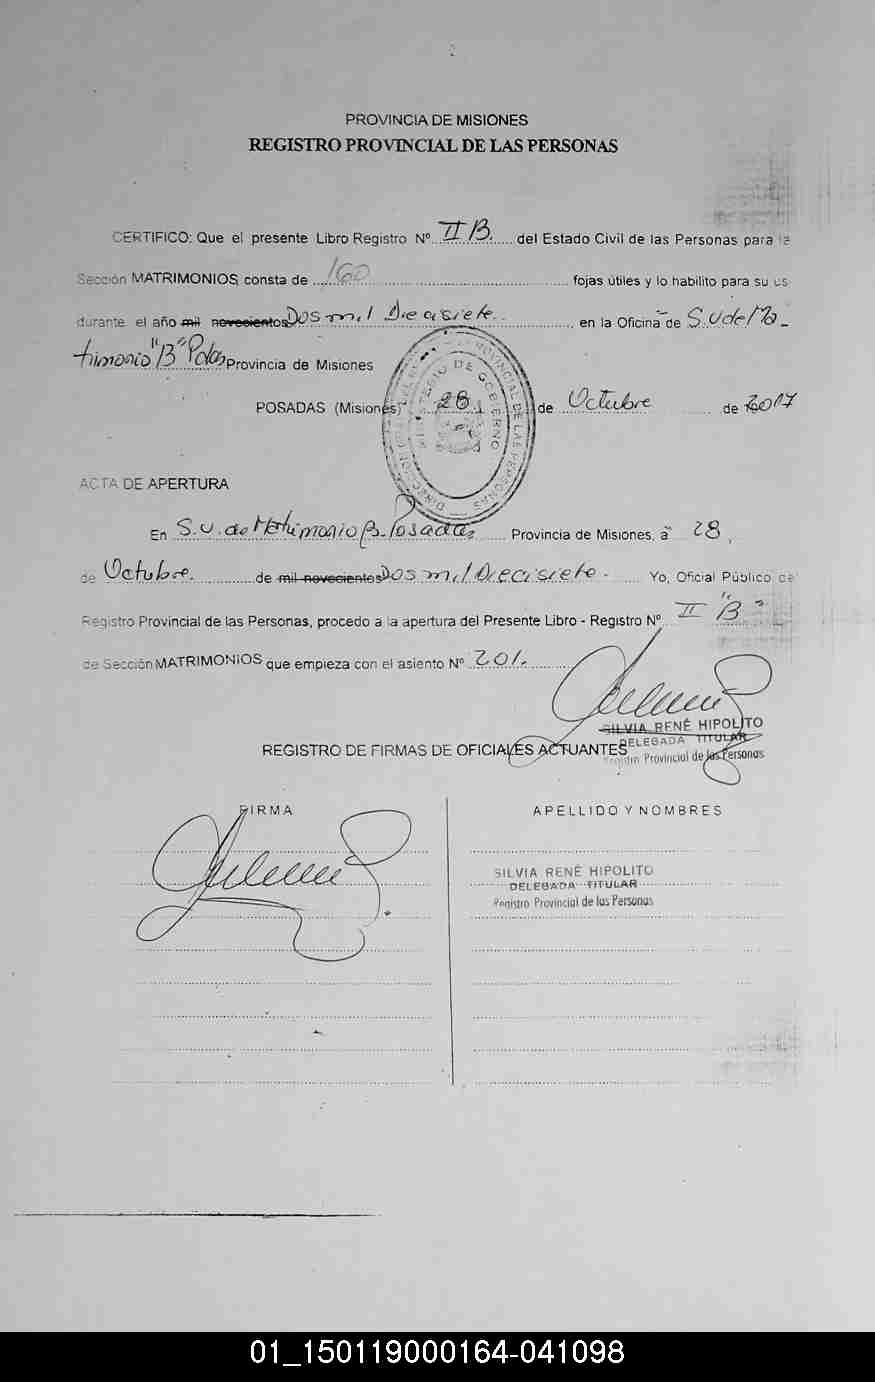 PROVINCIA DE MISIONES
REGISTRO PROVINCIAL DE LAS PERSONAS
CERTIFICO: Que el presente Libro Registro Nº II B. del Estado Civil de las Personas para la
Sección MATRIMONIOS, consta de 160 fojas útiles y lo habilito para su us
durante el año mil novecientos Dos mil Diecisiete. en la Oficina de S.U de Ma_
trimonio "B" Pdas Provincia de Misiones
POSADAS (Misiones) 28 de Octubre de 2017
MINISTERIO DE GOBIERNO
PROVINCIAL DE LAS PERSONAS
ACTA DE APERTURA
En S.U. de Matrimonio B. Posadas Provincia de Misiones, a 28,
de Octubre. de mil novecientos Dos mil Diecisiete. Yo, Oficial Público de
Registro Provincial de las Personas, procedo a la apertura del Presente Libro - Registro Nº II "B"
de Sección MATRIMONIOS que empieza con el asiento Nº 201.
SILVIA RENÉ HIPOLITO
DELEGADA TITULAR
Registro Provincial de las Personas
REGISTRO DE FIRMAS DE OFICIALES ACTUANTES
FIRMA APELLIDO Y NOMBRES
SILVIA RENÉ HIPOLITO
DELEGADA TITULAR
Registro Provincial de las Personas
01_150119000164-041098